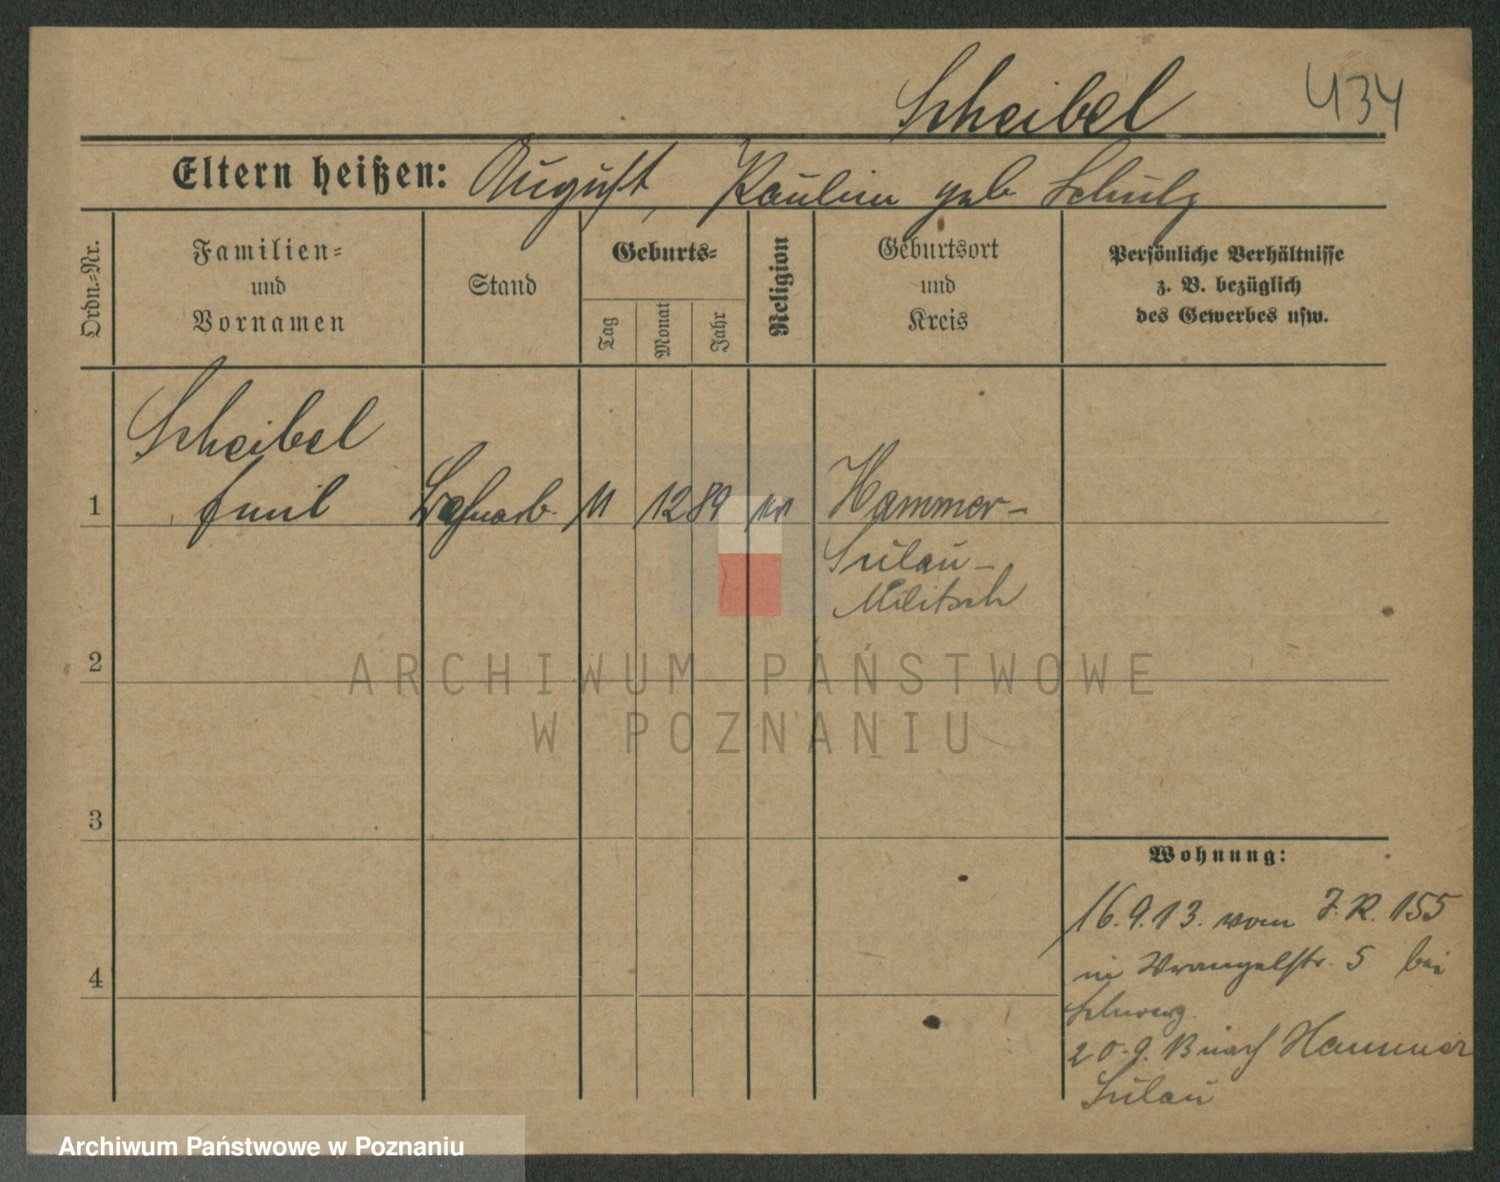 Scheibel 434
Eltern heißen: August, Paulin geb. Schulz
Ordn.-Nr.
Familien-
und
Vornamen
Stand
Geburts-
Tag
Monat
Jahr
Religion
Geburtsort
und
Kreis
Persönliche Verhältnisse
z. B. bezüglich
des Gewerbes usw.
Scheibel
1 Emil 11 12 89 ev Hammer-
Sulau-
Militsch
2
ARCHIWUM PAŃSTWOWE
W POZNANIU
3
Wohnung:
16.9.13. vom J.R. 155
in Wrangelstr. 5 bei
4
20.9.13 nach Hammer
Sulau
Archiwum Państwowe w Poznaniu